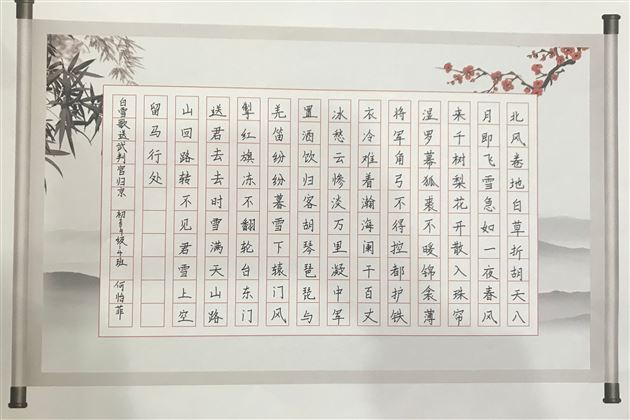 北风卷地白草折胡天八
月即飞雪急如一夜春风
来千树梨花开散入珠帘
湿罗幕狐裘不暖锦衾薄
将军角弓不得控都护铁
衣冷难着瀚海阑干百丈
冰愁云惨淡万里凝中军
置酒饮归客胡琴琵琶与
羌笛纷纷暮雪下辕门风
掣红旗冻不翻轮台东门
送君去去时雪满天山路
山回路转不见君雪上空
留马行处
白雪歌送武判官归京 何怡菲